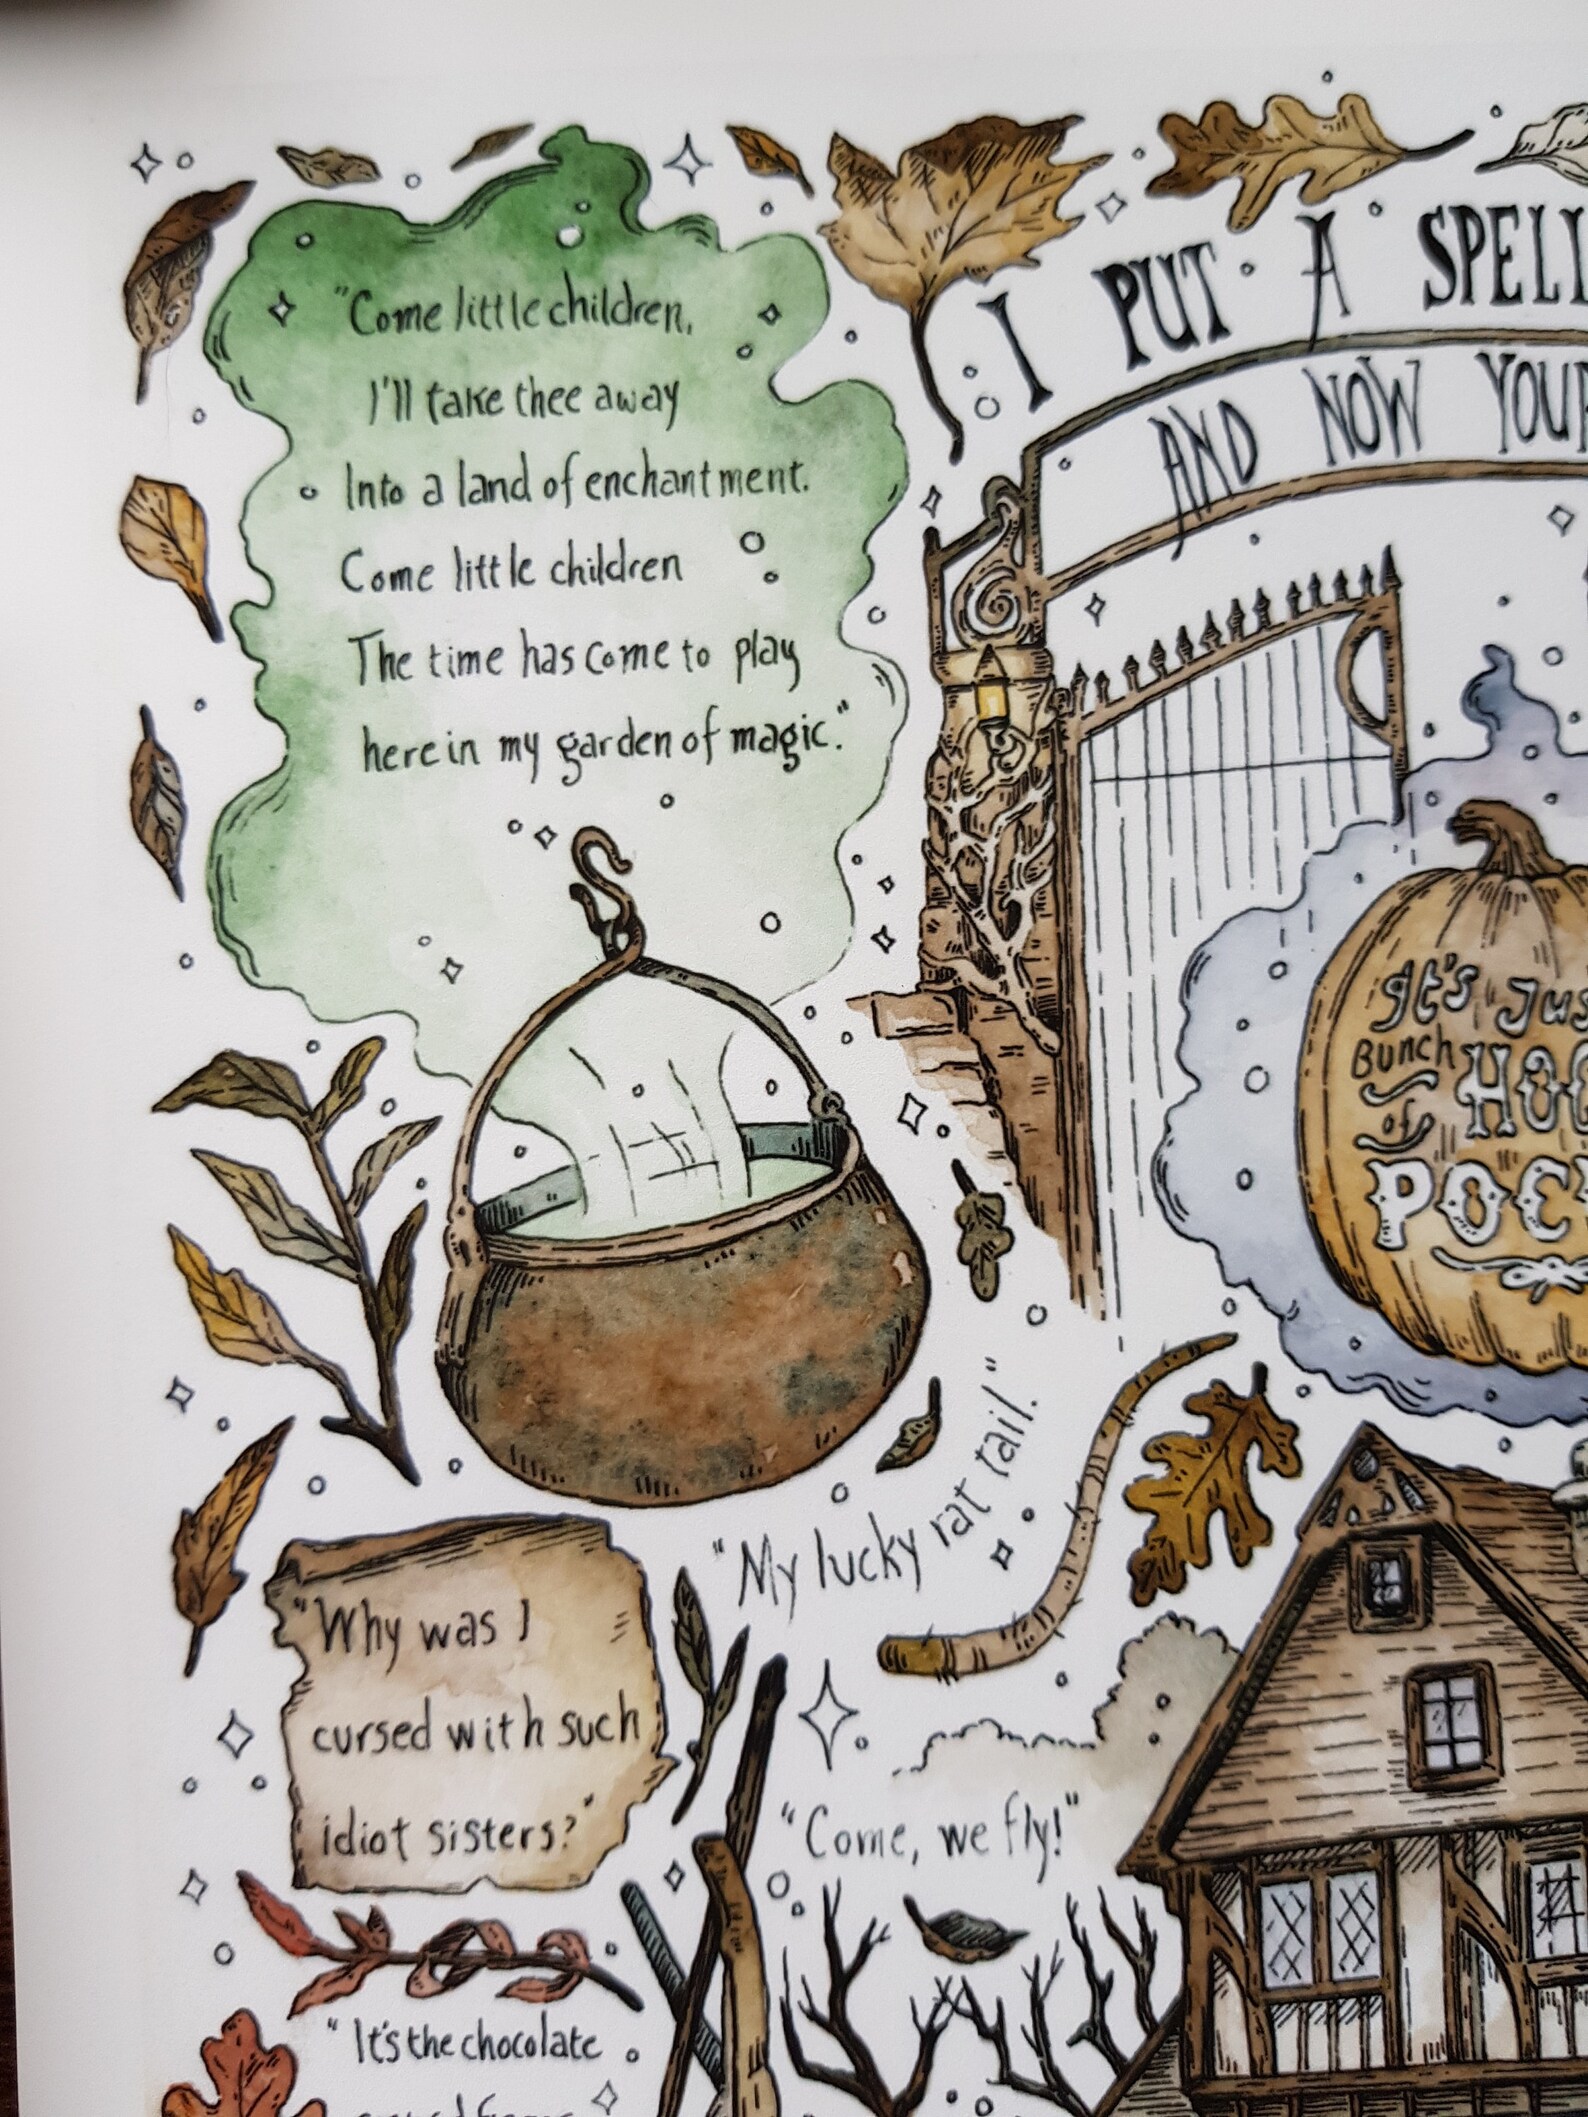 "Come little children,
I'll take thee away
Into a land of enchantment.
Come little children
The time has come to play
here in my garden of magic."
I PUT A SPELL
AND NOW YOUR
It's Jus
BUNCH
of HOC
POC
"My lucky rat tail."
"Why was I
cursed with such
idiot sisters?"
"Come, we fly!"
"It's the chocolate